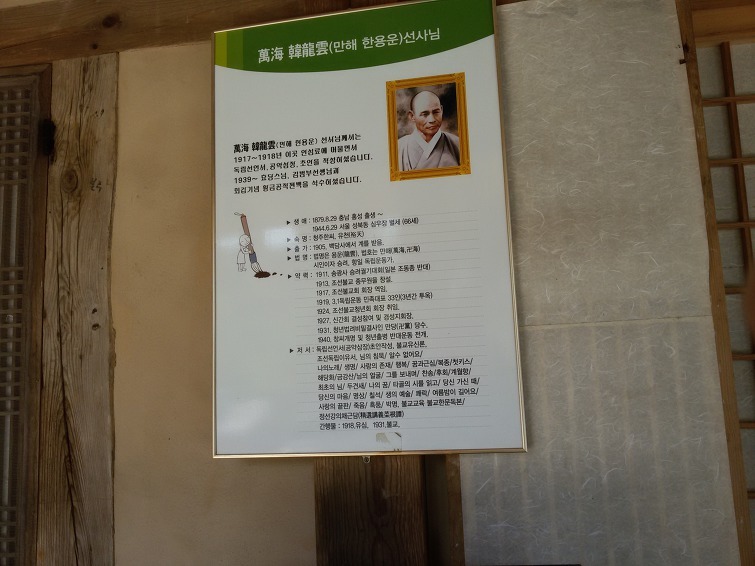 萬海 韓龍雲(만해 한용운)선사님
萬海 韓龍雲(만해 한용운) 선사님께서는
1917~1918년 이곳 안심료에 머물면서
독립선언서, 공약삼장, 초안을 작성하셨습니다.
1939~ 효당스님, 김범부선생님과
회갑기념 황금공작편백을 식수하셨습니다.
▶ 생 애 : 1879.8.29 충남 홍성 출생 ~
1944.6.29 서울 성북동 심우장 별세 (66세)
▶ 속 명 : 청주한씨, 유천(裕天)
▶ 출 가 : 1905, 백담사에서 계를 받음.
▶ 법 명 : 법명은 용운(龍雲), 법호는 만해(萬海,卍海)
시인이자 승려, 항일 독립운동가,
▶ 약 력 : 1911, 송광사 승려궐기대회(일본 조동종 반대)
1913, 조선불교 종무원을 창설,
1917, 조선불교회 회장 역임,
1919, 3.1독립운동 민족대표 33인(3년간 투옥)
1924, 조선불교청년회 회장 취임,
1927, 신간회 결성참여 및 경성지회장,
1931, 청년법려비밀결사인 만당(卍黨) 당수,
1940, 창씨개명 및 청년출병 반대운동 전개,
▶ 저 서 : 독립선언서(공약삼장)초안작성, 불교유신론,
조선독립이유서, 님의 침묵/ 알수 없어요/
나의노래/ 생명/ 사랑의 존재/ 행복/ 꿈과근심/복종/첫키스/
해당화/금강산/님의 얼굴/ 그를 보내며/ 찬송/후회/계월향/
최초의 님/ 두견새/ 나의 꿈/ 타골의 시를 읽고/ 당신 가신 때/
당신의 마음/ 명상/ 칠석/ 생의 예술/ 쾌락/ 여름밤이 길어요/
사랑의 끝판/ 죽음/ 흑풍/ 박명, 불교교육 불교한문독본/
정선강의채근담(精選講義菜根譚)
간행물 : 1918,유심, 1931,불교,